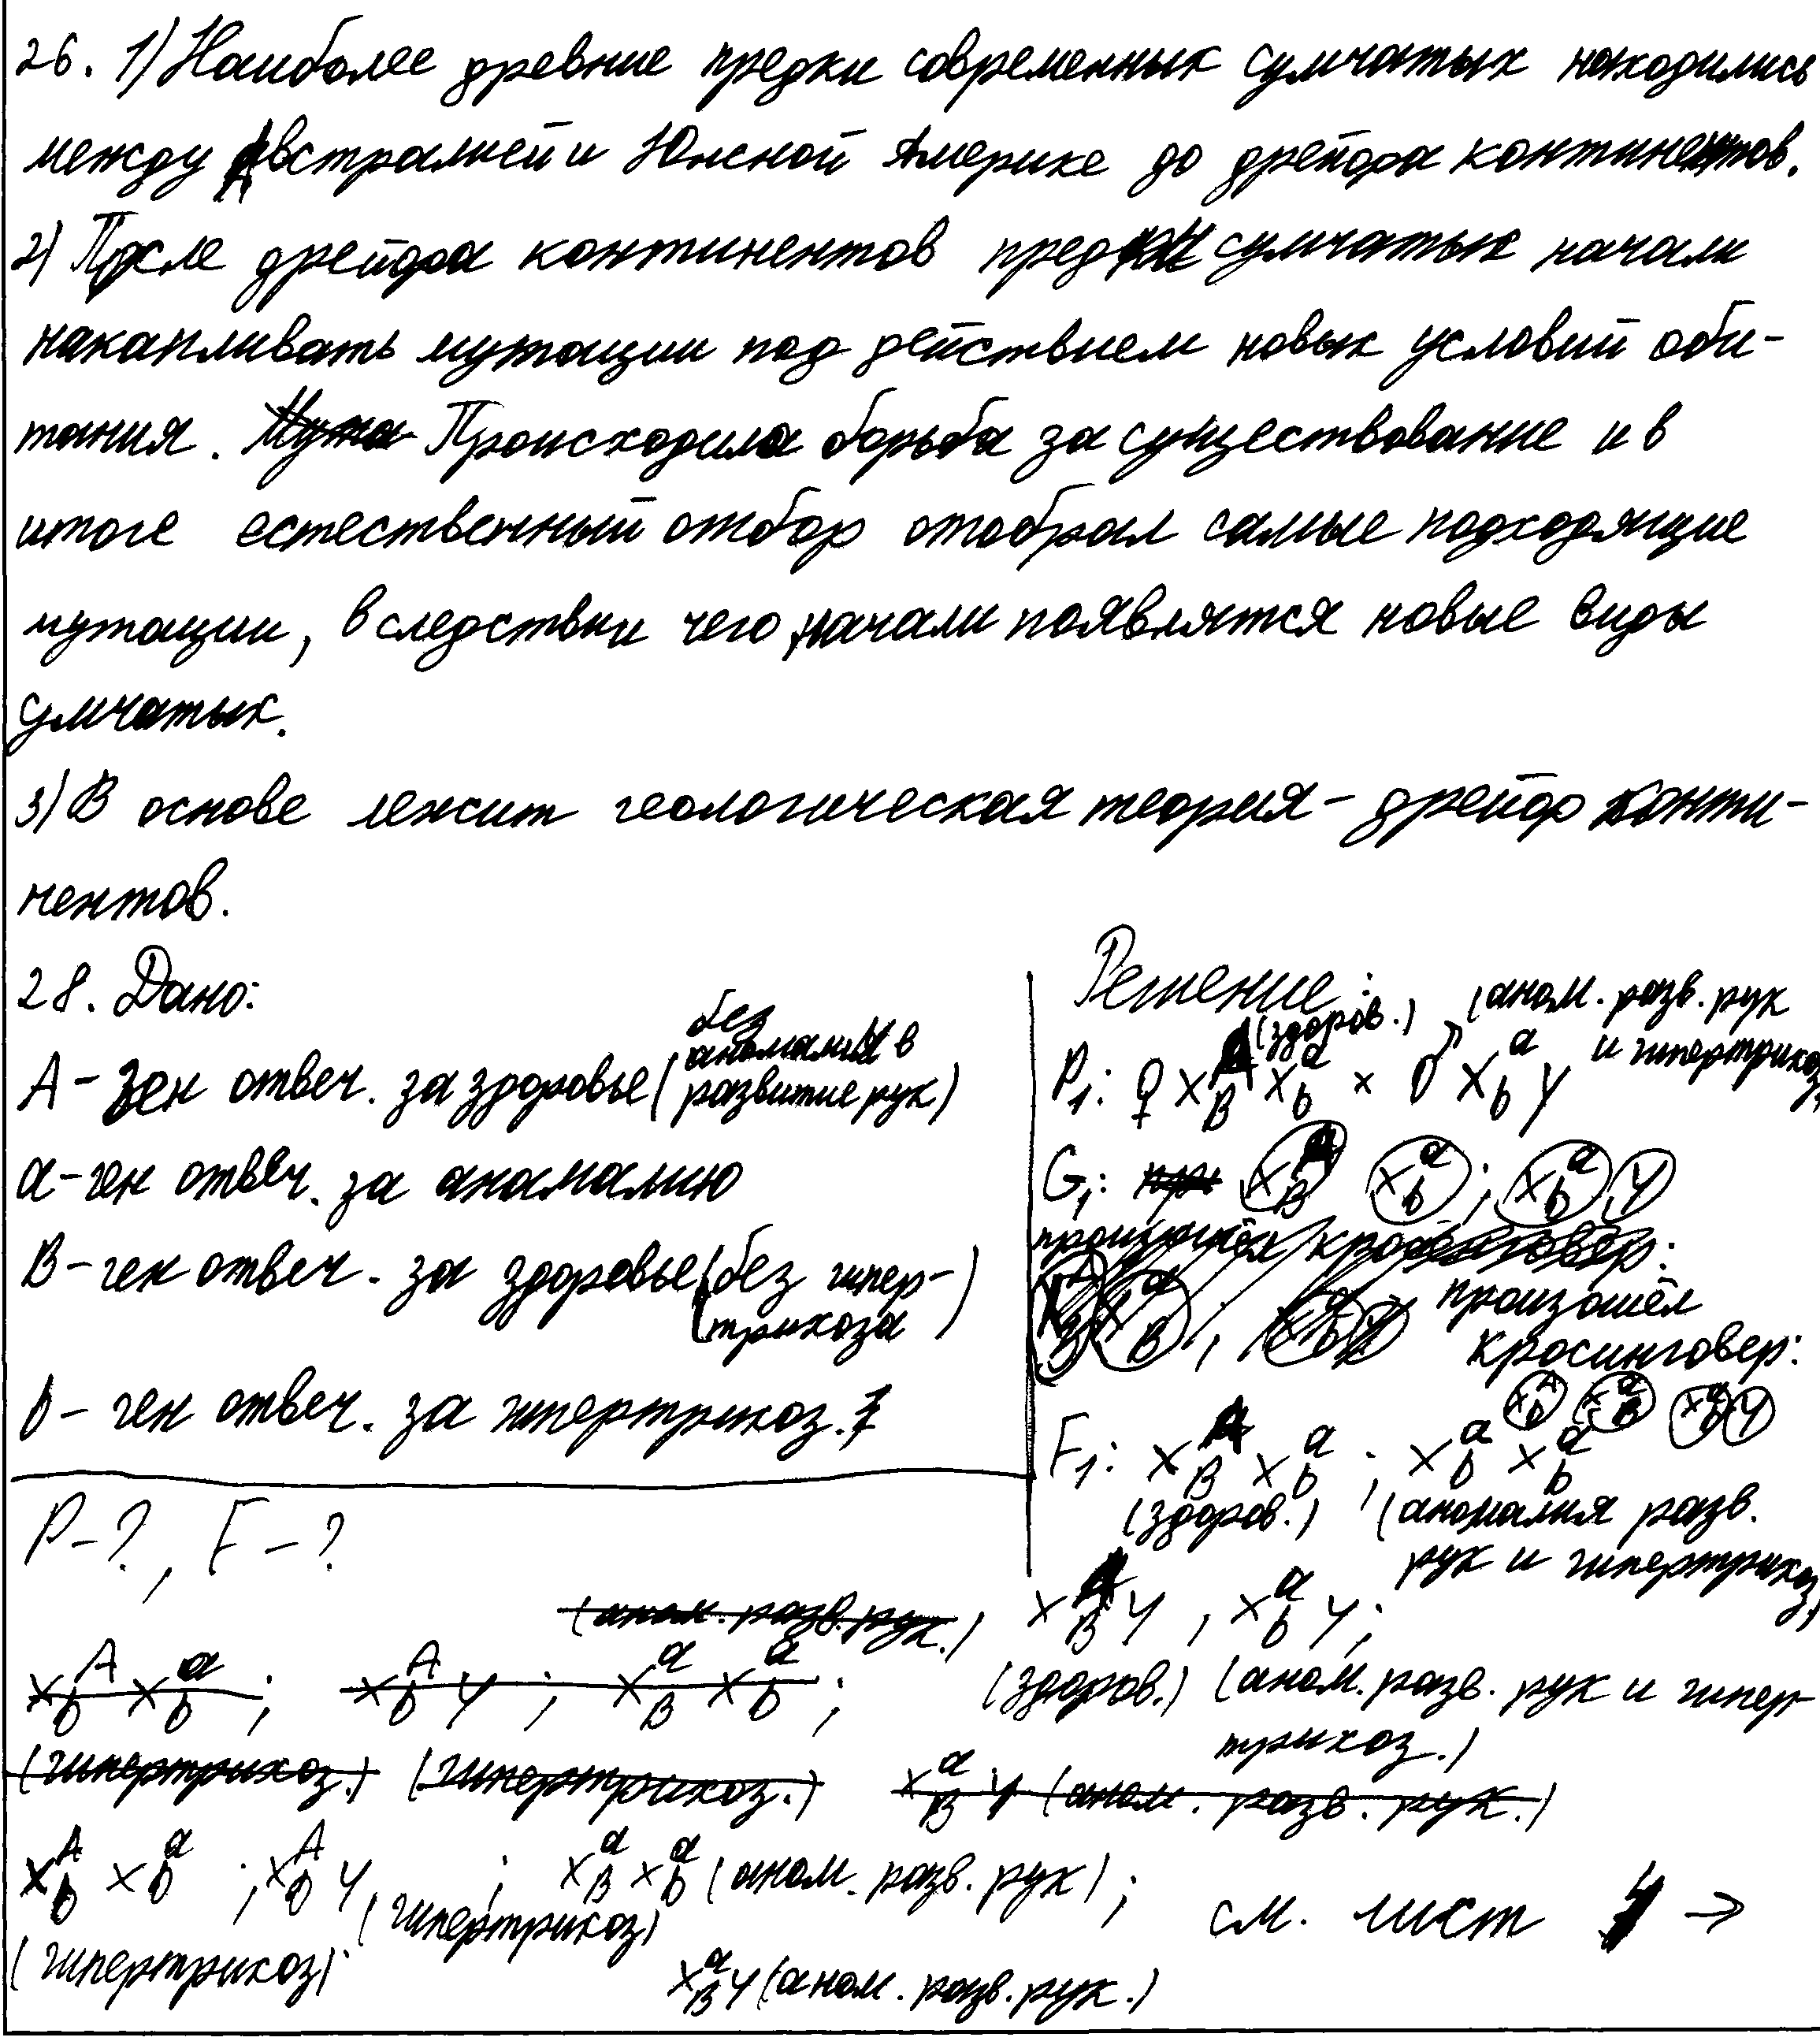 26. 1) Наиболее древние предки современных сумчатых находились
между Австралией и Южной Америке до дрейфа континентов.
2) После дрейфа континентов предки сумчатых начали
накапливать мутации под действием новых условий оби-
тания. Мута Происходила борьба за существование и в
итоге естественный отбор отобрал самые подходящие
мутации, вследствии чего начали появлятся новые виды
сумчатых.
3) В основе лежит геологическая теория - дрейф конти-
нентов.
28. Дано:
A - ген отвеч. за здоровье (без аномалий в развитие рук)
a - ген отвеч. за анамалию
B - ген отвеч. за здоровье (без гипер-
трихоза)
b - ген отвеч. за гипертрихоз.
P - ?, F - ?
Решение:
(здоров.) (аном. разв. рук и гипертрихоз)
P₁: ♀ X^A_B X^a_b × ♂ X^a_b Y
G₁: X^A_B X^a_b ; X^a_b Y
произошёл кроссинговер:
произошёл
кросинговер:
X^A_b X^a_B X^a_b Y
F₁: X^A_B X^a_b ; X^a_b X^a_b
(здоров.) (аномалия разв.
рук и гипертрихоз)
X^A_B Y , X^a_b Y ;
(здоров.) (аном. разв. рук и гипер-
трихоз.)
(аном. разв. рук.)
X^A_b X^a_b ; X^A_b Y ; X^a_B X^a_b ;
(гипертрихоз.) (гипертрихоз.) X^a_B Y (аном. разв. рук.)
X^A_b X^a_b ; X^A_b Y ; X^a_B X^a_b (аном. разв. рук) ;
(гипертрихоз) (гипертрихоз)
X^a_B Y (аном. разв. рук.)
см. лист 4 →